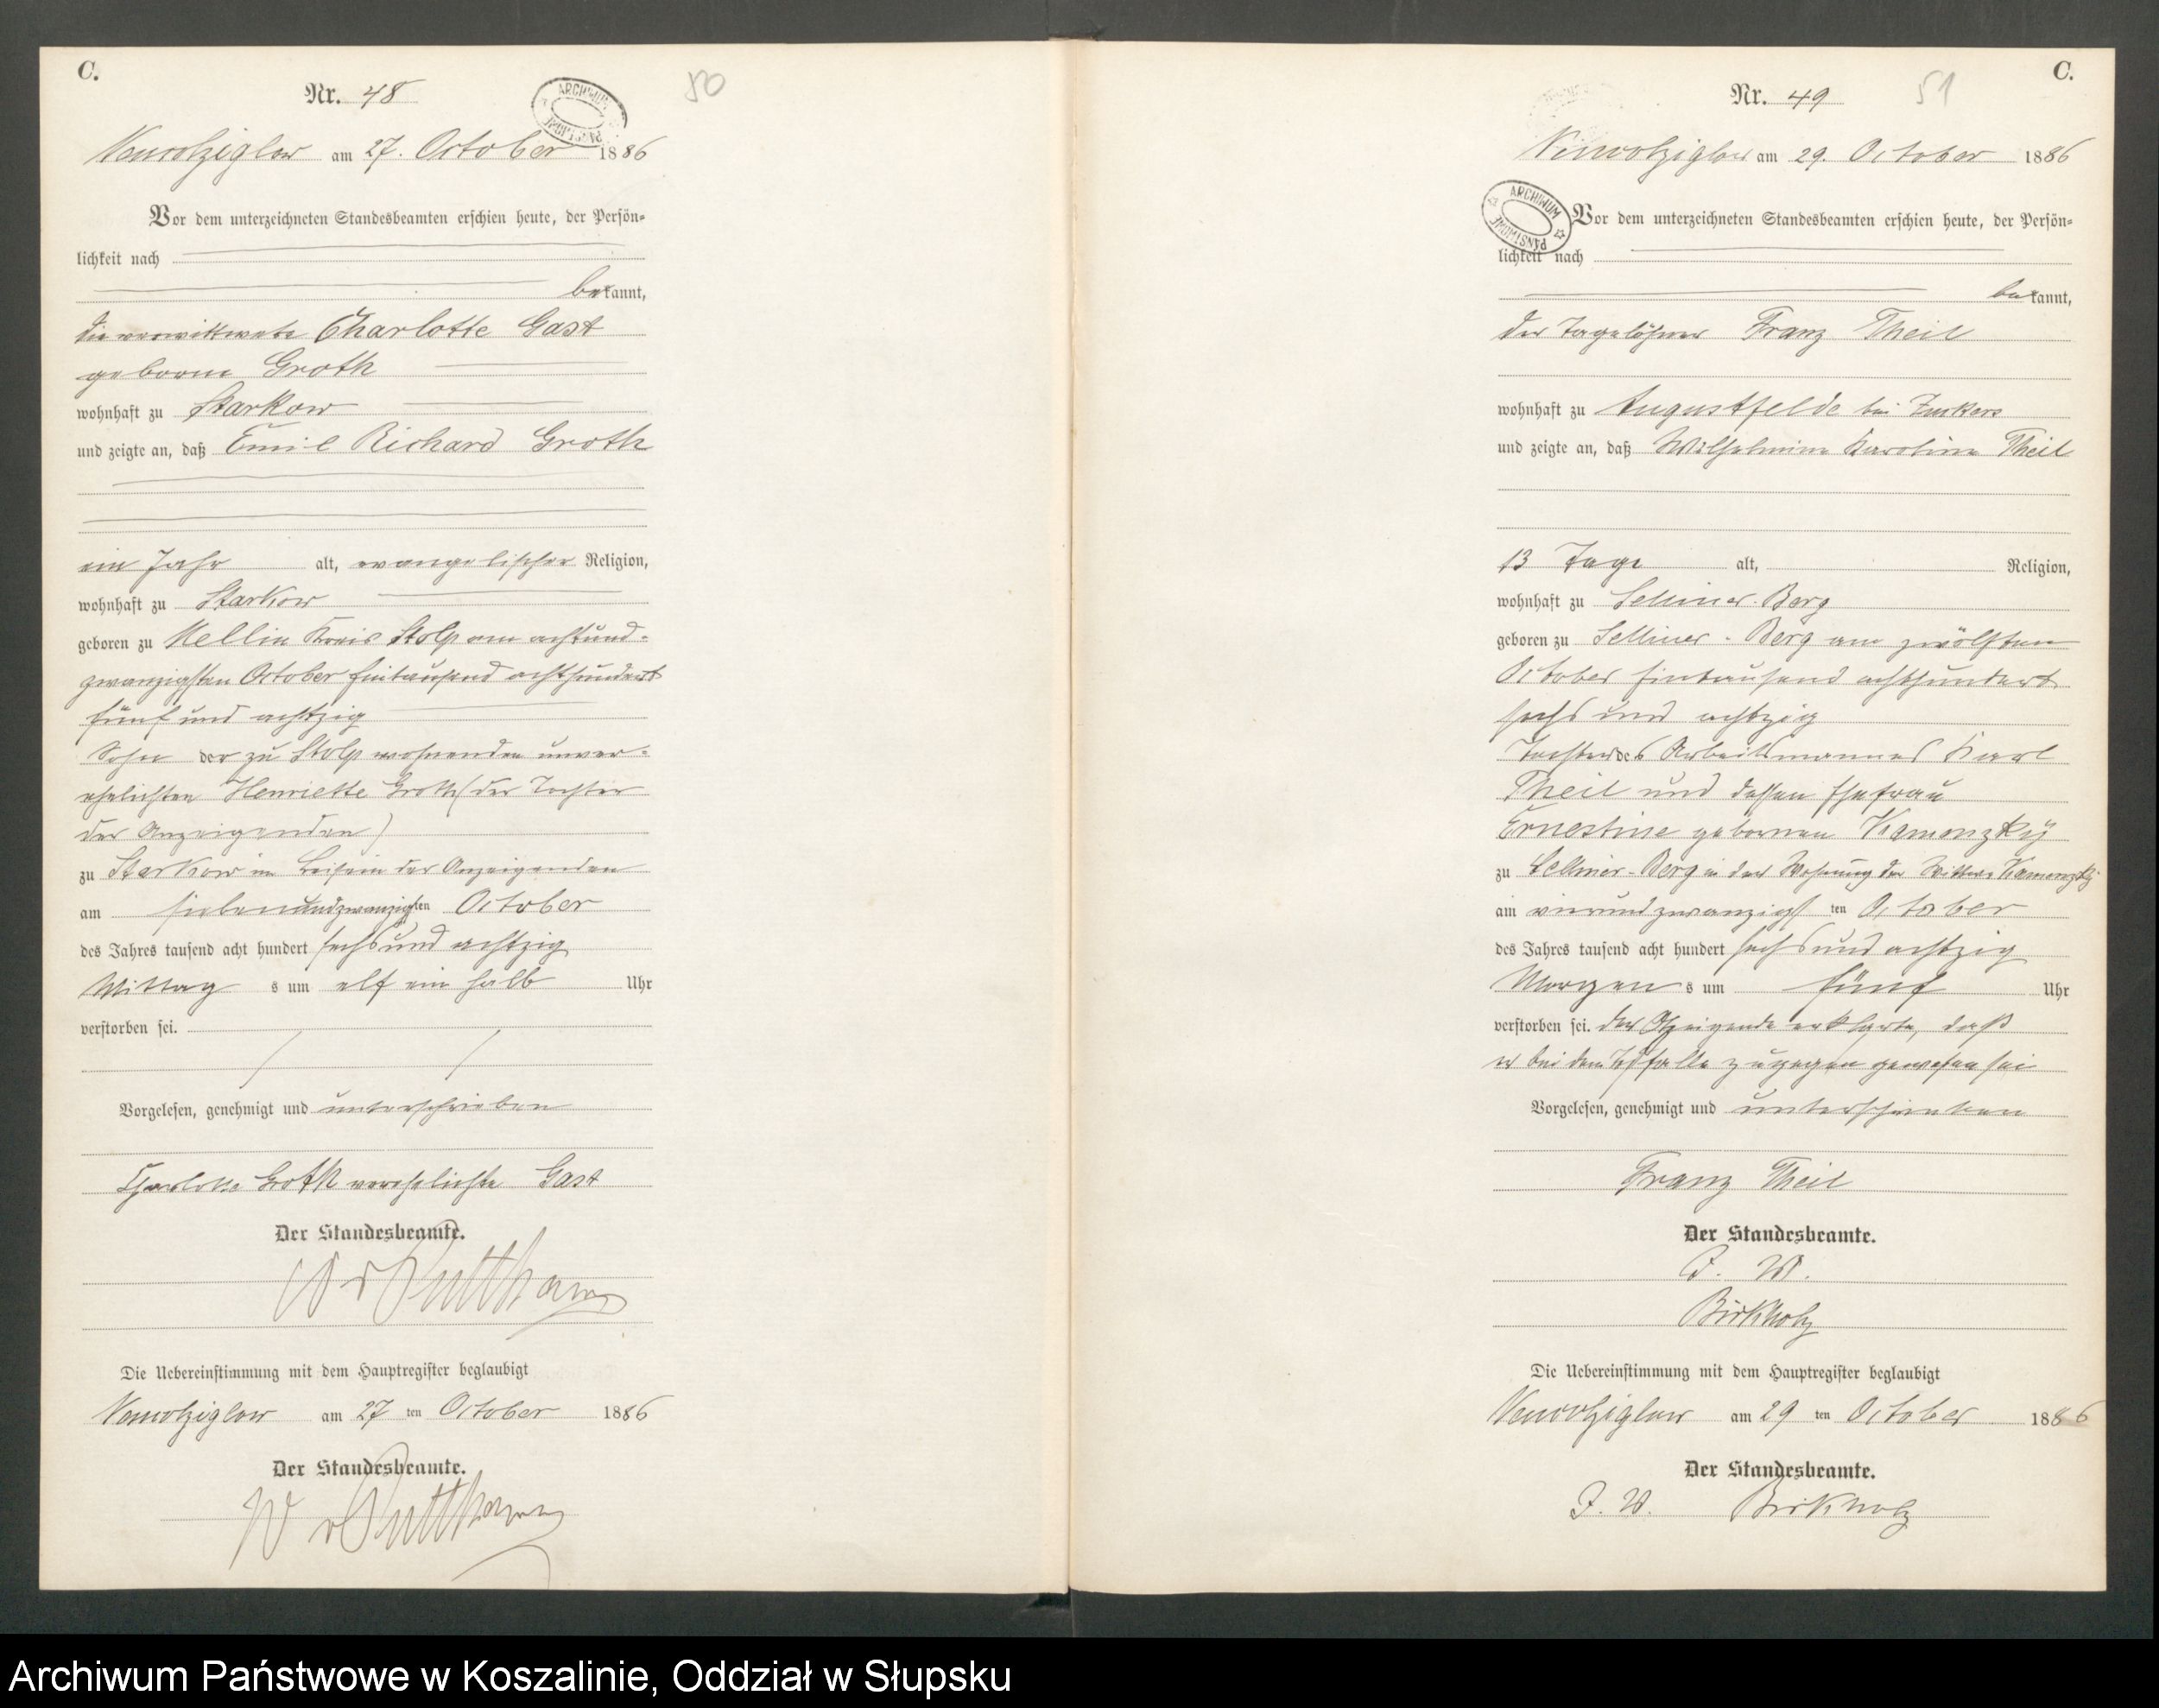 C.
Nr. 48
50
ARCHIWUM PAŃSTWOWE
Nenwolziglow am 27. October 1886
Vor dem unterzeichneten Standesbeamten erschien heute, der Persön-
lichkeit nach
bekannt,
die verwittwete Charlotte Gast
geborne Groth
wohnhaft zu Starkow
und zeigte an, daß Emil Richard Groth
ein Jahr alt, evangelischer Religion,
wohnhaft zu Starkow
geboren zu Mellin Kreis Stolp am achtund-
zwanzigsten October Eintausend achthundert
fünf und achtzig
Sohn der zu Stolp wohnenden unver-
ehelichten Henriette Groth (der Tochter
der Anzeigenden)
zu Starkow im Beisein der Anzeigenden
am siebenundzwanzigsten October
des Jahres tausend acht hundert sechs und achtzig
Mittags um elf ein halb Uhr
verstorben sei.
Vorgelesen, genehmigt und unterschrieben
Charlotte Groth verehelichte Gast
Der Standesbeamte.
W v Puttkamer
Die Uebereinstimmung mit dem Hauptregister beglaubigt
Nenwolziglow am 27 ten October 1886
Der Standesbeamte.
W v Puttkamer
C.
Nr. 49
51
Nenwolziglow am 29. October 1886
ARCHIWUM PAŃSTWOWE
Vor dem unterzeichneten Standesbeamten erschien heute, der Persön-
lichkeit nach
bekannt,
der Tagelöhner Franz Theil
wohnhaft zu Augustfelde bei Zuckers
und zeigte an, daß Wilhelmine Karoline Theil
13 Tage alt, Religion,
wohnhaft zu Selliner-Berg
geboren zu Selliner-Berg am zwölften
October Eintausend achthundert
sechs und achtzig
Tochter des Arbeitsmannes Karl
Theil und dessen Ehefrau
Ernestine gebornen Kamenzky
zu Selliner-Berg in der Wohnung der Wittwe Kamenzky
am vierundzwanzigsten October
des Jahres tausend acht hundert sechs und achtzig
Morgens um fünf Uhr
verstorben sei. Der Anzeigende erklärte, daß
er bei dem Todfalle zugegen gewesen sei
Vorgelesen, genehmigt und unterschrieben
Franz Theil
Der Standesbeamte.
J. V.
Birkholz
Die Uebereinstimmung mit dem Hauptregister beglaubigt
Nenwolziglow am 29 ten October 1886
Der Standesbeamte.
J. V. Birkholz
Archiwum Państwowe w Koszalinie, Oddział w Słupsku